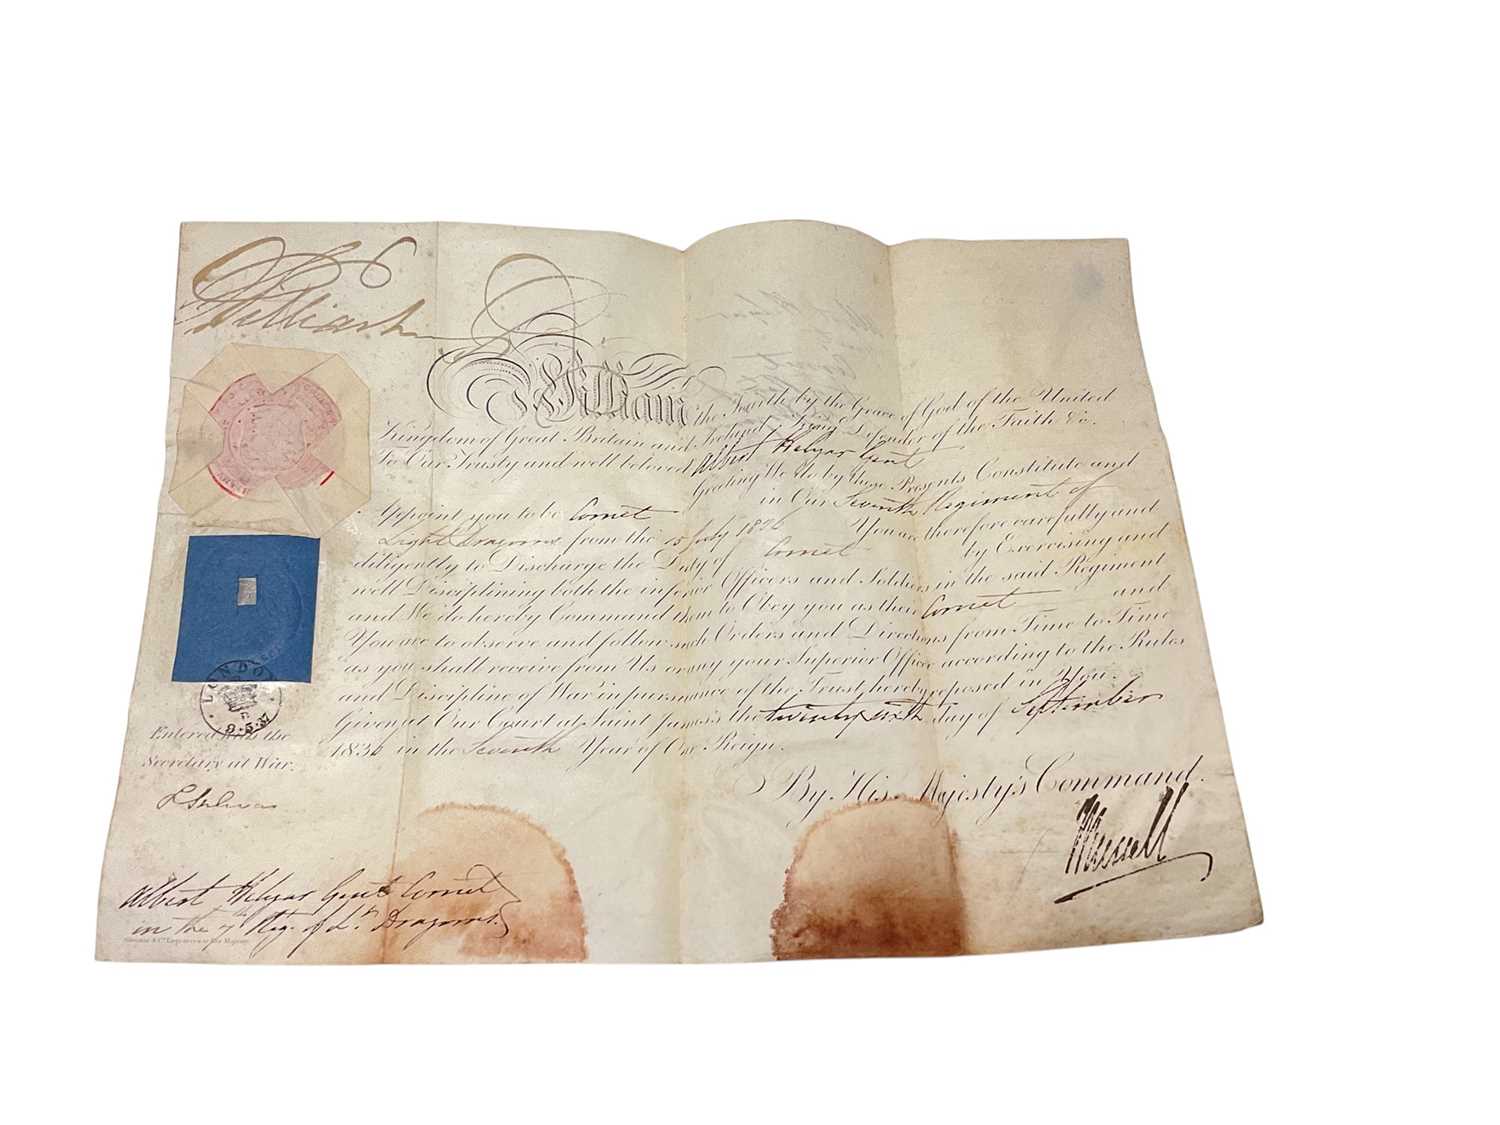 William R
William the Fourth by the Grace of God of the United
Kingdom of Great Britain and Ireland, King Defender of the Faith &c.
To Our Trusty and well beloved Albert Helyar Gent
Greeting We do by these Presents Constitute and
Appoint you to be Cornet in Our Seventh Regiment of
Light Dragoons from the 15 July 1836 You are therefore carefully and
diligently to Discharge the Duty of Cornet by Exercising and
well Disciplining both the inferior Officers and Soldiers in the said Regiment
and We do hereby Command them to Obey you as their Cornet and
You are to observe and follow such Orders and Directions from Time to Time
as you shall receive from Us or any your Superior Officer according to the Rules
and Discipline of War in pursuance of the Trust hereby reposed in You.
Given at Our Court at Saint James's the twenty sixth day of September
1836 in the Seventh Year of Our Reign.
By His Majesty's Command.
JRussell
LONDON
9·5·37
Entered with the
Secretary at War.
Albert Helyar Gent Cornet
in the 7th Reg. of Lt. Dragoons.